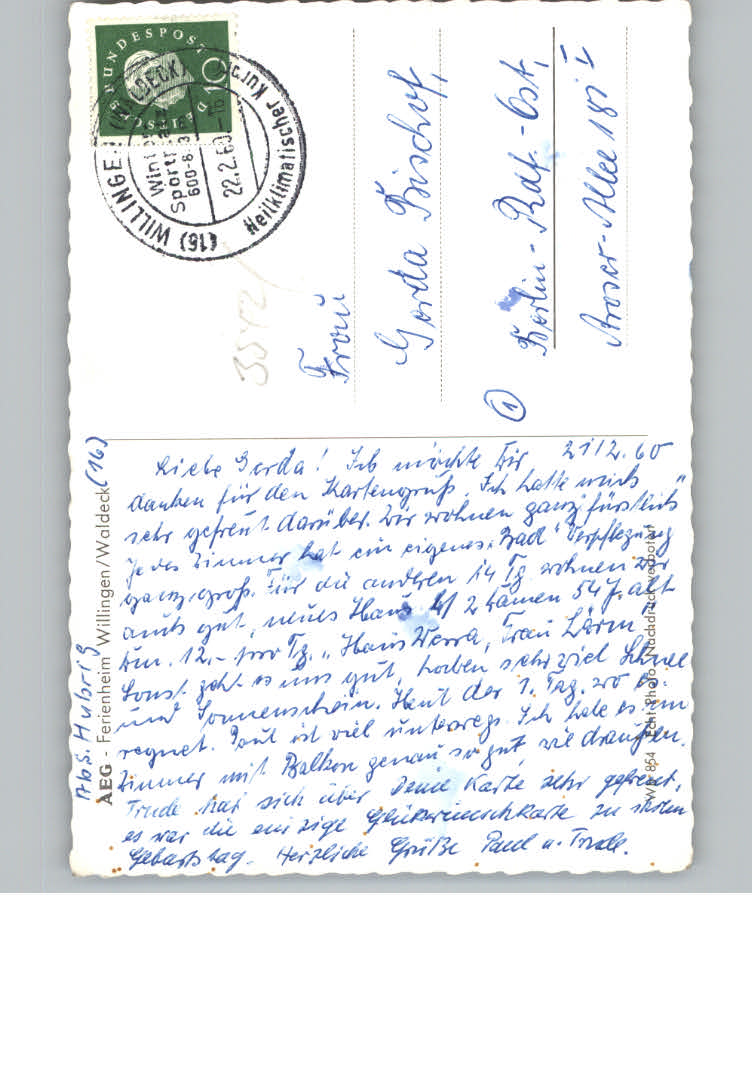 DEUTSCHE BUNDESPOST
10
(16) WILLINGEN (WALDECK)
Heilklimatischer Kurort
Winter
Sportplatz
600-83
22.2.60 -16
3542
Frau
Gerda Bischof,
① Berlin-Rdf.-Ost,
Aroser-Allee 181 I
Abs. Hubrig (16)
AEG - Ferienheim Willingen/Waldeck
W 854 Echt Photo Nachdruck verboten!
21/2.60
Liebe Gerda! Ich möchte Dir
danken für den Kartengruß. Ich hatte mich
sehr gefreut darüber. Wir wohnen ganz "fürstlich"
Jedes Zimmer hat ein eigenes "Bad" Verpflegung
ganz groß. Für die anderen 14 Tg. wohnen wir
auch gut, neues Haus 2 Damen 54 J. alt
12,- pro Tg. "Haus Werra, Frau Lärm"
Sonst geht es uns gut, haben sehr viel Schnee
und Sonnenschein. Heut der 1. Tag, wo es
regnet. Paul ist viel unterwegs. Ich habe es im
Zimmer mit Balkon genau so gut, wie draußen.
Trude hat sich über Deine Karte sehr gefreut,
es war die einzige Glückwunschkarte zu ihrem
Geburtstag. Herzliche Grüße Paul u. Trude.